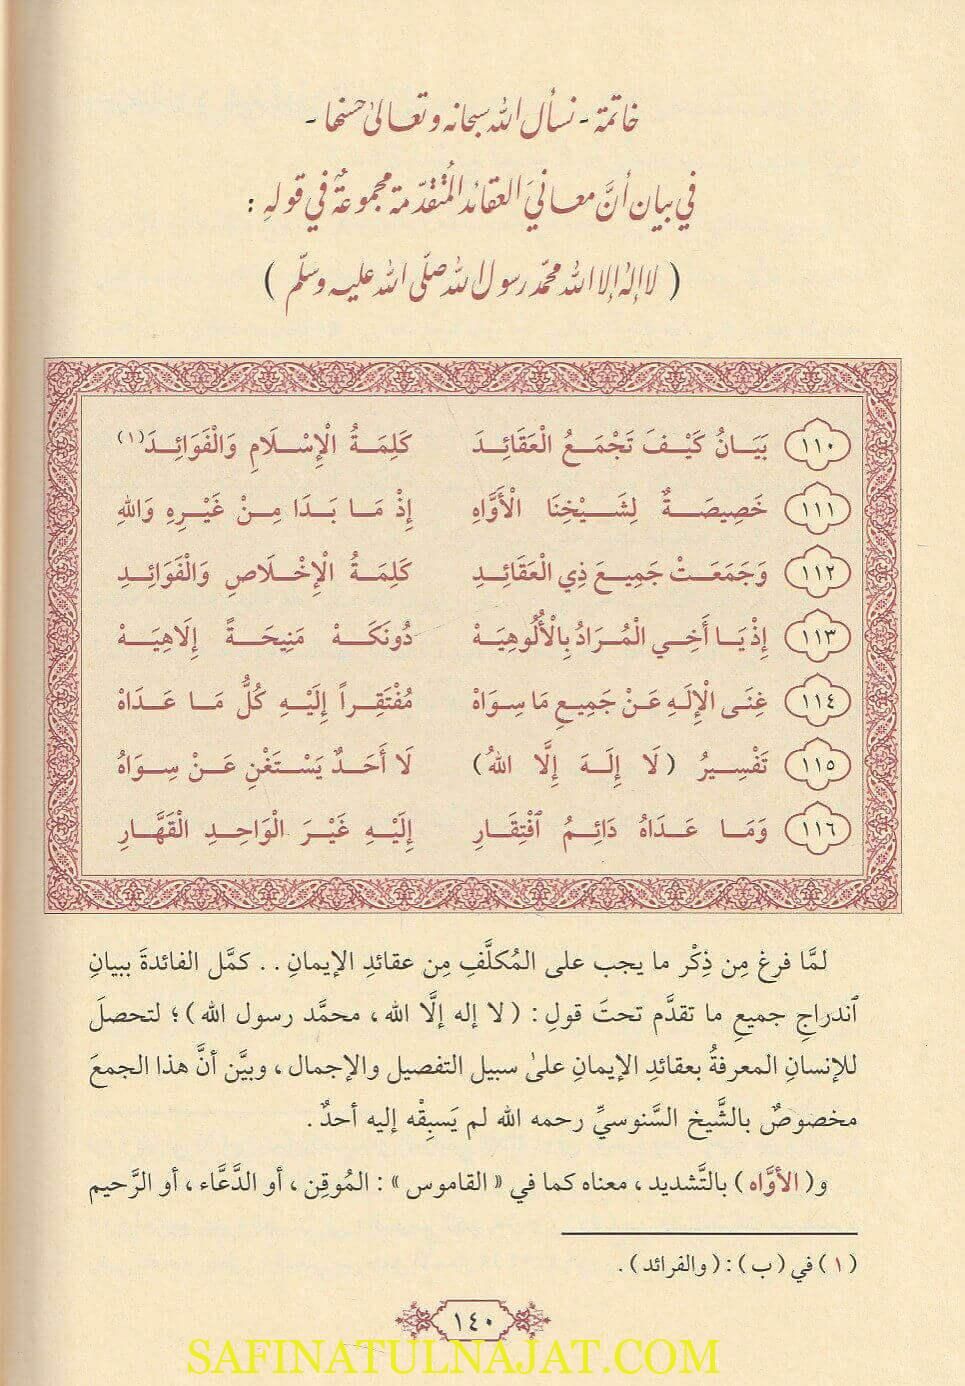 خاتمة - نسأل الله سبحانه وتعالىٰ حسنها -
في بيان أنَّ معانيَ العقائد المُتقدّمة مجموعةٌ في قولهِ :
( لا إلهَ إلا الله محمّد رسول الله صلّى الله عليه وسلّم )
١١٠ بَيَانُ كَيْـفَ تَجْمَـعُ الْعَقَائِـدَ كَلِمَـةُ الْإِسْـلَامِ وَالْفَوَائِـدَ(١)
١١١ خَصِيصَـةٌ لِشَـيْخِنَا الْأَوَّاهِ إِذْ مَـا بَـدَا مِـنْ غَيْـرِهِ وَاللهِ
١١٢ وَجَمَعَـتْ جَمِيـعَ ذِي الْعَقَائِـدِ كَلِمَـةُ الْإِخْـلَاصِ وَالْفَوَائِـدِ
١١٣ إِذْ يَـا أَخِـي الْمُـرَادُ بِالْأُلُوهِيَـهْ دُونَكَـهْ مَنِيحَـةً إِلَاهِيَـهْ
١١٤ غِنَـى الْإِلَـهِ عَـنْ جَمِيـعِ مَا سِـوَاهْ مُفْتَقِـراً إِلَيْـهِ كُلُّ مَـا عَـدَاهْ
١١٥ تَفْسِـيرُ ( لَا إِلَـهَ إِلَّا اللهُ ) لَا أَحَـدٌ يَسْـتَغْنِ عَـنْ سِـوَاهُ
١١٦ وَمَـا عَـدَاهُ دَائِـمُ ٱفْتِقَـارِ إِلَيْـهِ غَيْـرَ الْوَاحِـدِ الْقَهَّـارِ
لمَّا فرغ مِن ذِكْر ما يجب على المُكلَّفِ مِن عقائدِ الإيمانِ . . كمَّل الفائدةَ ببيانِ
ٱندراجِ جميعِ ما تقدَّم تحتَ قولِ : ( لا إله إلَّا الله ، محمَّد رسول الله ) ؛ لتحصلَ
للإنسانِ المعرفةُ بعقائدِ الإيمانِ علىٰ سبيل التفصيل والإجمال ، وبيَّن أنَّ هذا الجمعَ
مخصوصٌ بالشَّيخ السَّنوسيِّ رحمه الله لم يَسبِقْه إليه أحدٌ .
و( الأوَّاه ) بالتَّشديد ، معناه كما في « القاموس » : المُوقِن ، أو الدَّعَّاء ، أو الرَّحيم
( ١ ) في ( ب ) : ( والفرائد ) .
١٤٠
SAFINATULNAJAT.COM